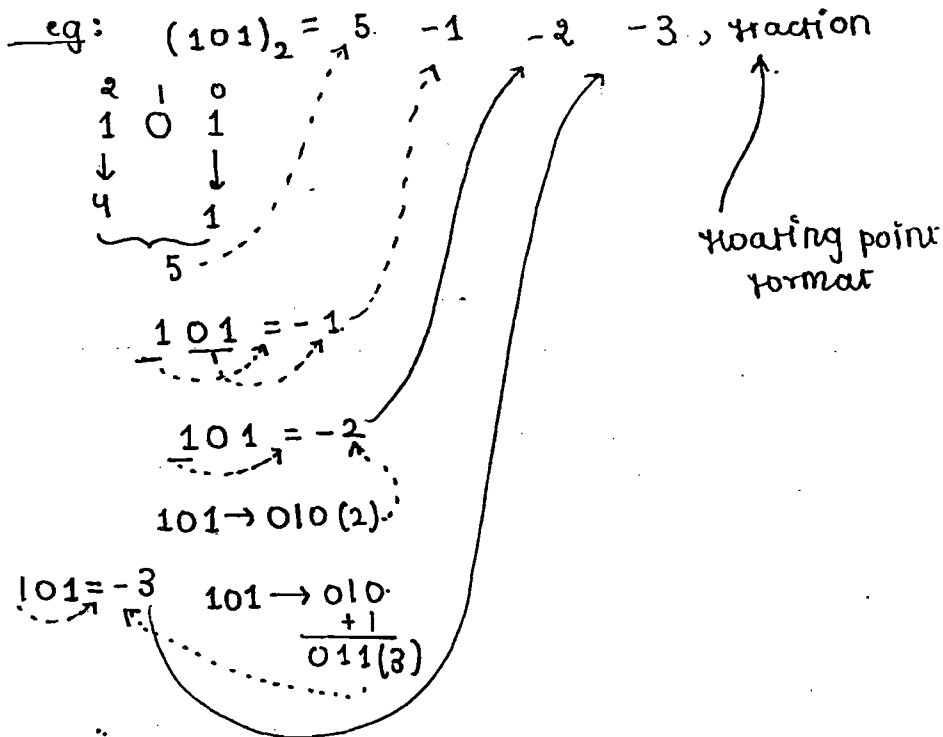 eg: (101)₂ = 5 -1 -2 -3, fraction
2 1 0
1 0 1
↓ ↓
4 1
5
floating point
format
1 0 1 = -1
1 0 1 = -2
101 → 010 (2)
101 = -3
101 → 010
+ 1
011 (3)